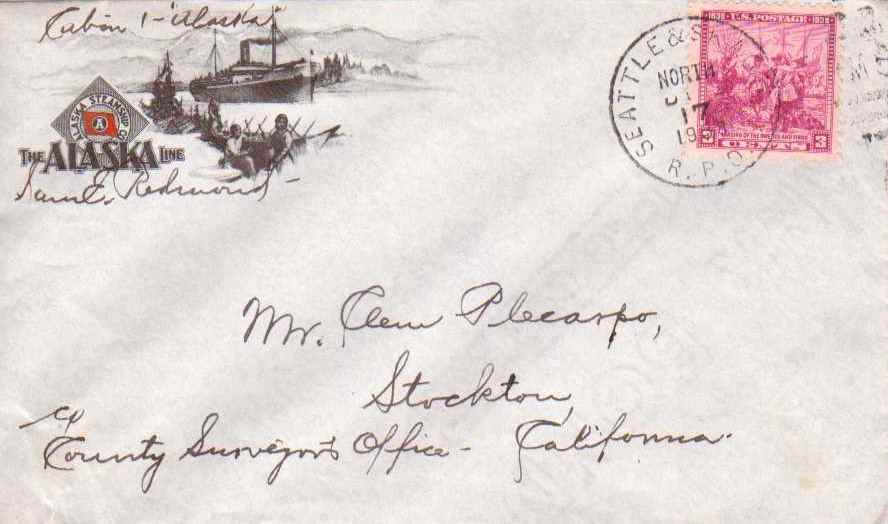 Cabin 1 - "Alaska"
ALASKA STEAMSHIP CO
A
THE ALASKA LINE
Sam E. Redmond -
SEATTLE &
NORTH
17
19
R.P.O.
1638 U.S. POSTAGE 1938
LANDING OF THE SWEDES AND FINNS
3 CENTS 3
Mr. Clem Plecarpo,
Stockton,
County Surveyor's Office - California.